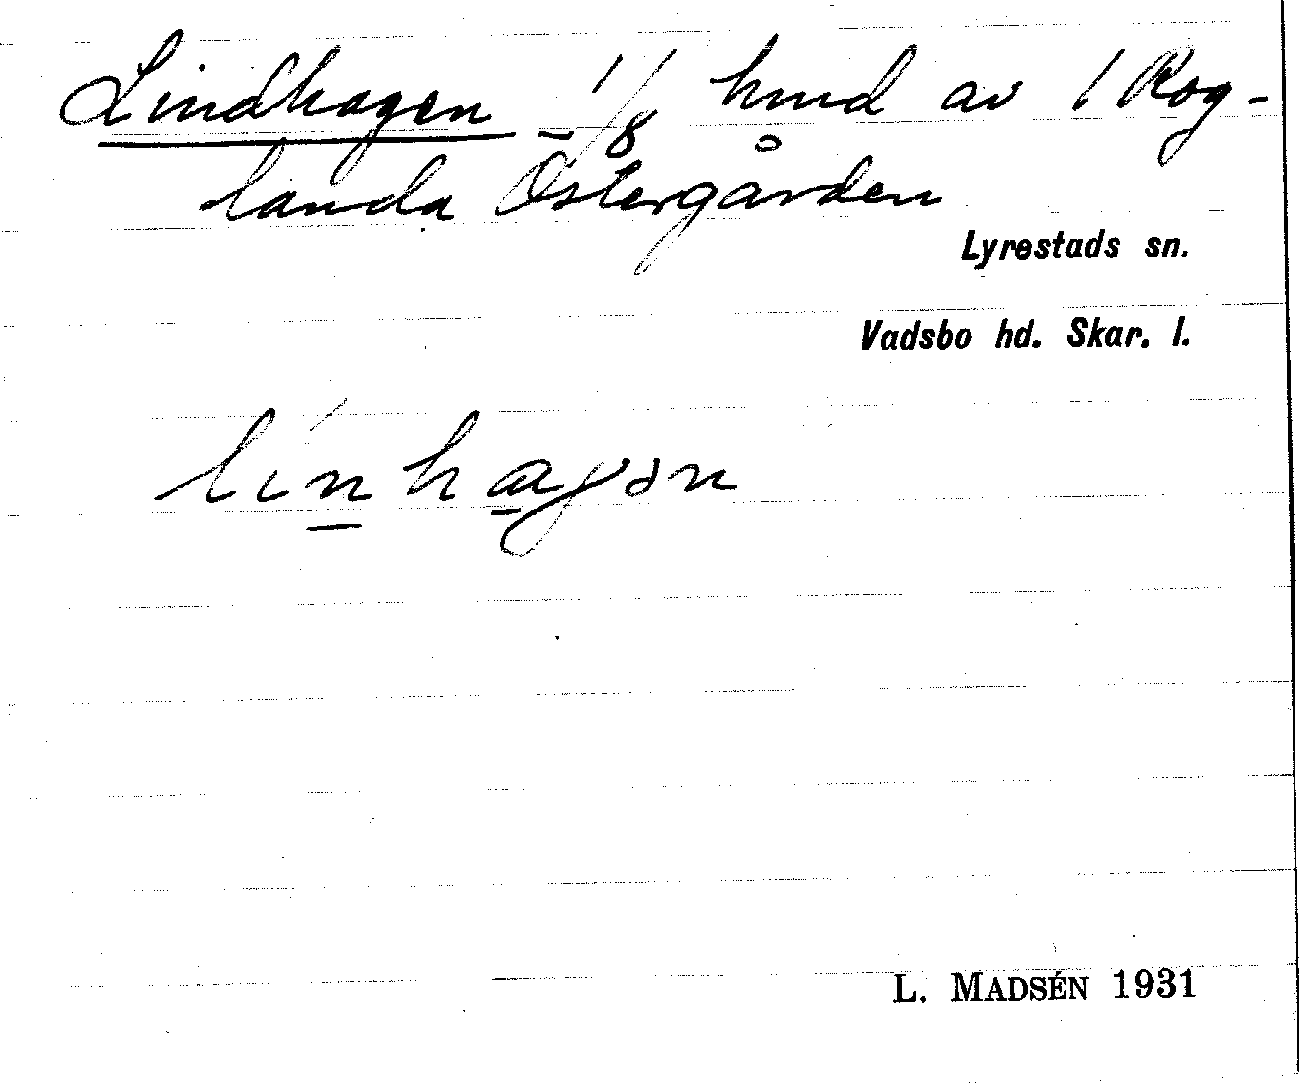 Lindhagen - 1/8 hmd av 1 Rog-
landa Östergården
Lyrestads sn.
Vadsbo hd. Skar. l.
línhagən
L. MADSÉN 1931